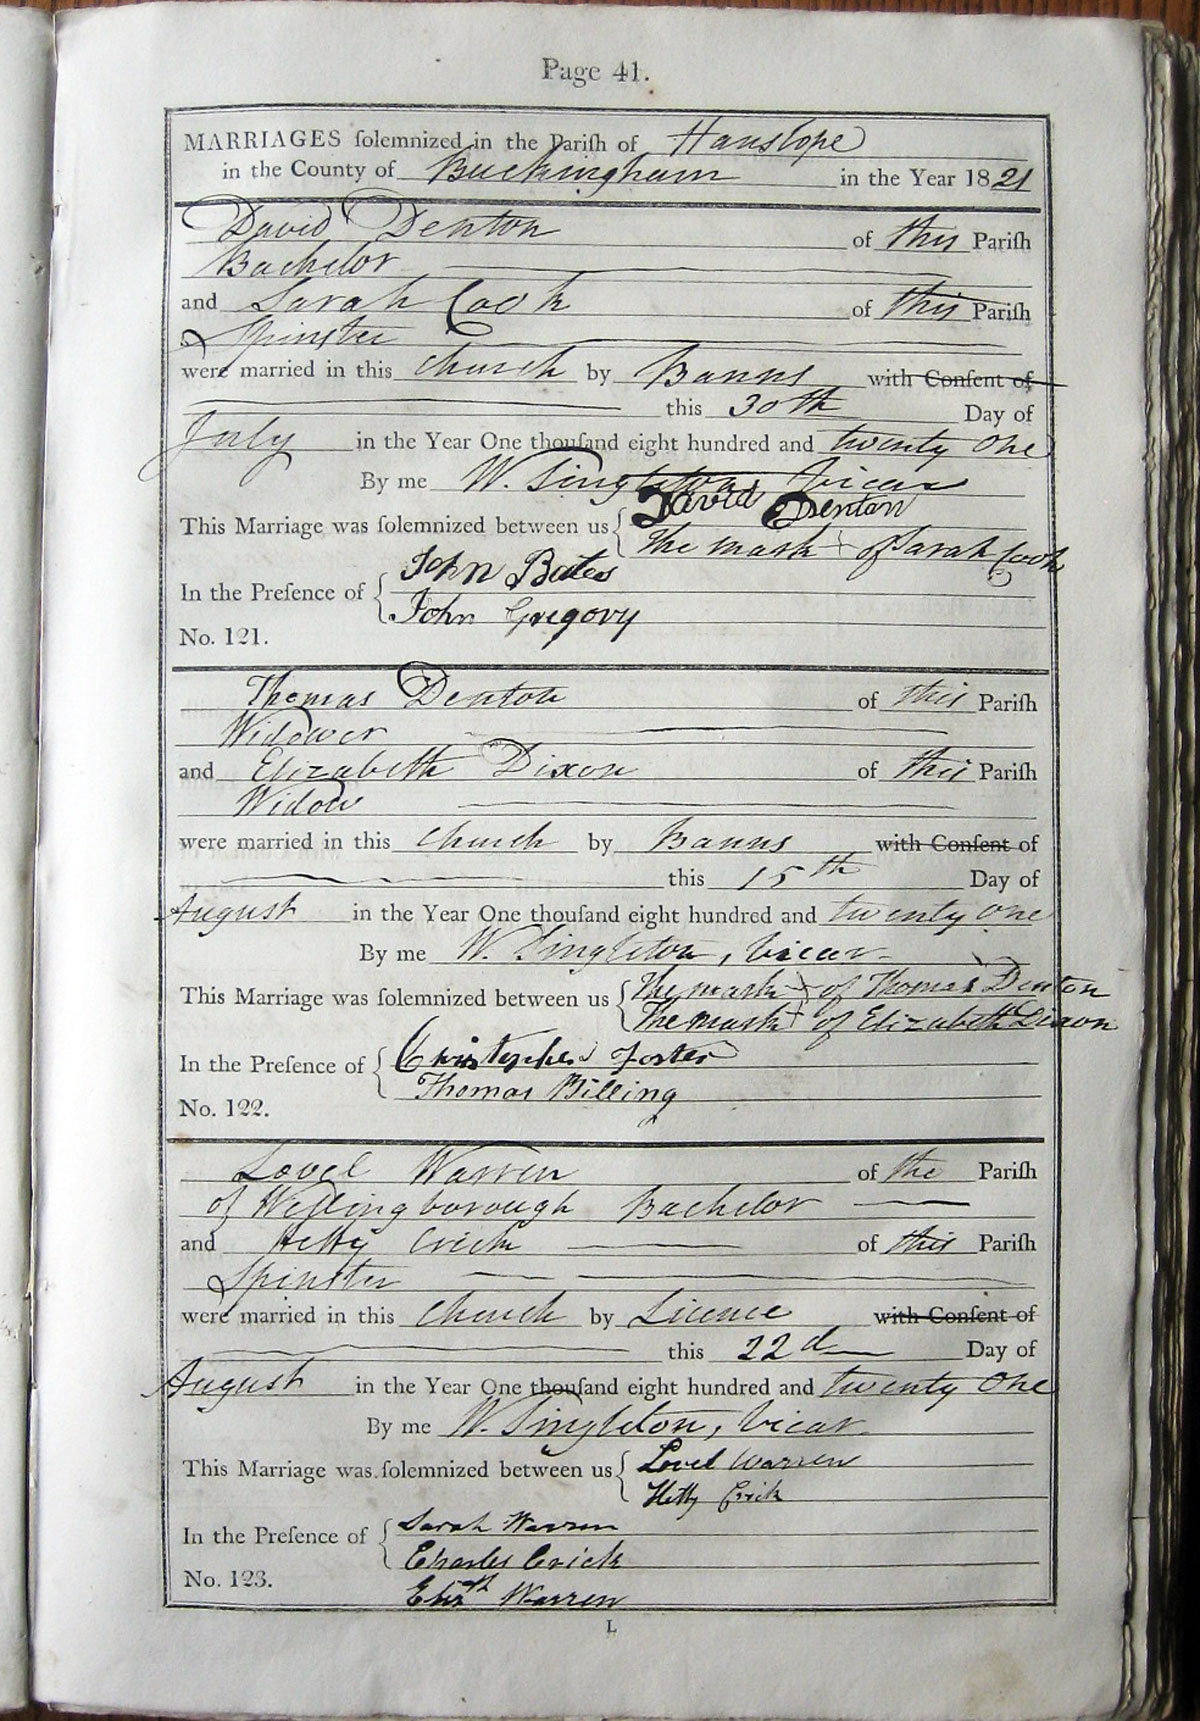 Page 41.
MARRIAGES ſolemnized in the Pariſh of Hanslope
in the County of Buckingham in the Year 1821
David Denton of this Pariſh
Bachelor
and Sarah Cook of this Pariſh
Spinster
were married in this Church by Banns with Conſent of
this 30th Day of
July in the Year One thouſand eight hundred and twenty one
By me W. Singleton Vicar
This Marriage was ſolemnized between us David Denton
The mark + of Sarah Cook
In the Preſence of John Bates
John Gregory
No. 121.
Thomas Denton of this Pariſh
Widower
and Elizabeth Dixon of this Pariſh
Widow
were married in this Church by Banns with Conſent of
this 15th Day of
August in the Year One thouſand eight hundred and twenty one
By me W. Singleton, Vicar
This Marriage was ſolemnized between us The mark + of Thomas Denton
The mark + of Elizabeth Dixon
In the Preſence of Christopher Foster
Thomas Billing
No. 122.
Lovel Warren of the Pariſh
of Wellingborough Bachelor
and Hetty Crick of this Pariſh
Spinster
were married in this Church by Licence with Conſent of
this 22d Day of
August in the Year One thouſand eight hundred and twenty one
By me W. Singleton, Vicar
This Marriage was ſolemnized between us Lovel Warren
Hetty Crick
In the Preſence of Sarah Warren
Charles Crick
No. 123.
Elizth Warren
L